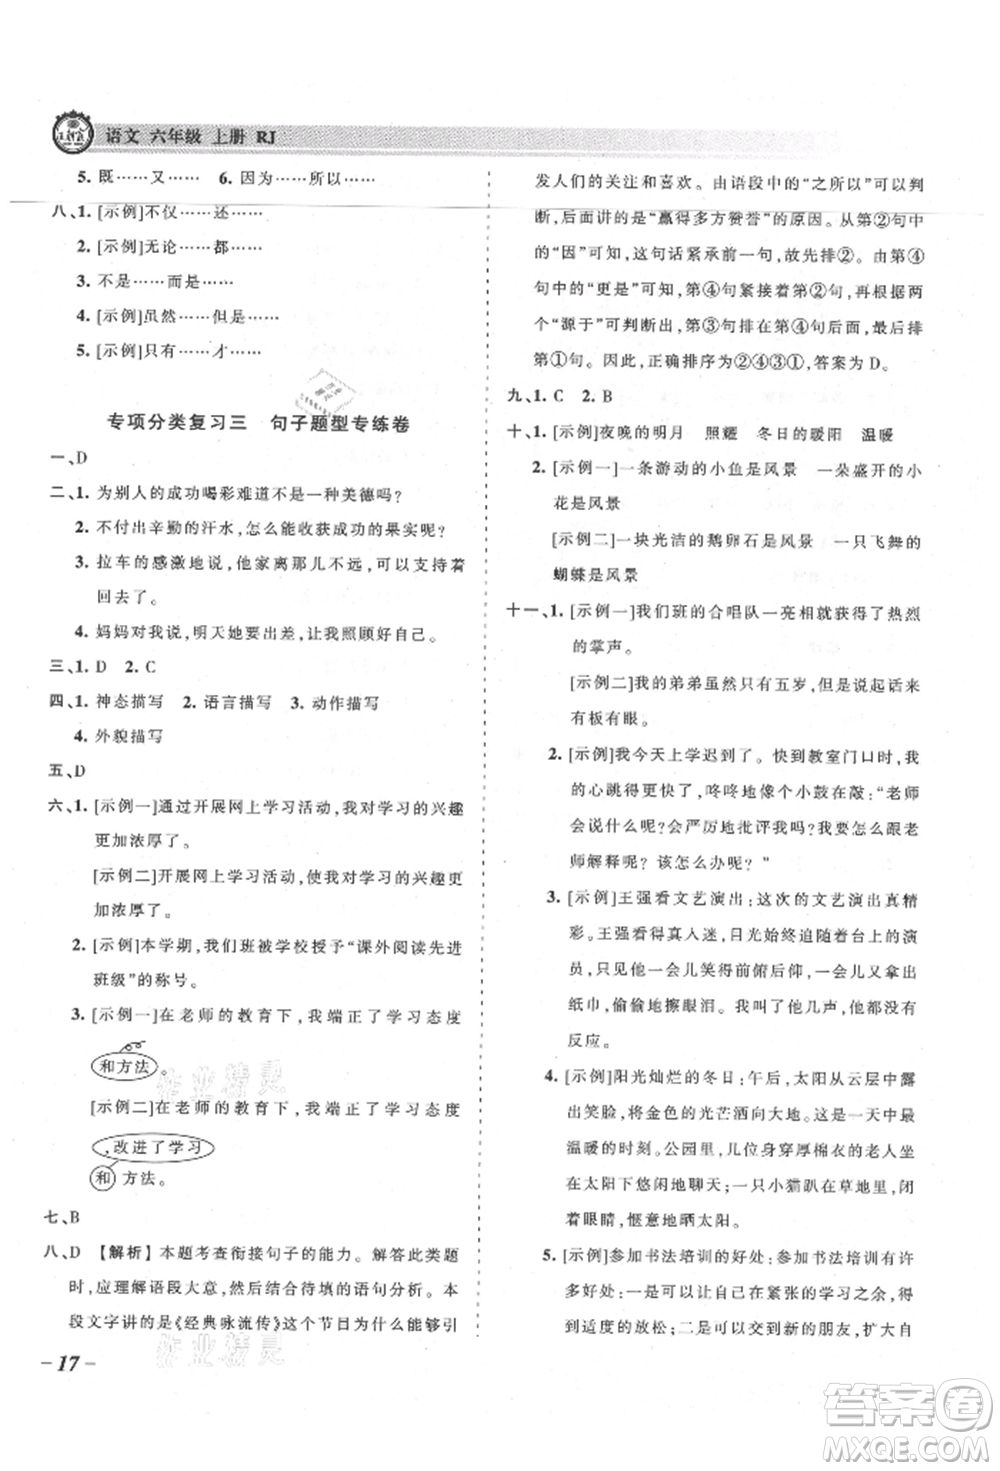 语文 六年级 上册 RJ
5. 既……又…… 6. 因为……所以……
八、1. [示例]不仅……还……
2. [示例]无论……都……
3. 不是……而是……
4. [示例]虽然……但是……
5. [示例]只有……才……
专项分类复习三 句子题型专练卷
一、D
二、1. 为别人的成功喝彩难道不是一种美德吗?
2. 不付出辛勤的汗水,怎么能收获成功的果实呢?
3. 拉车的感激地说,他家离那儿不远,就不再
回去了。
4. 妈妈对我说,明天她要出差,让我照顾好自己。
三、1. D 2. C
四、1. 神态描写 2. 语言描写 3. 动作描写
4. 外貌描写
五、D
六、1. [示例一]通过开展网上学习活动,我对学习的兴趣
更加浓厚了。
[示例二]开展网上学习活动,使我对学习的兴趣更
加浓厚了。
2. [示例]本学期,我们班被学校授予“课外阅读先进
班级”的称号。
3. [示例一]在老师的教育下,我端正了学习态度
和方法。
[示例二]在老师的教育下,我端正了学习态度
,改进了学习
和方法。
七、B
八、D 【解析】本题考查衔接句子的能力。解答此类题
时,应理解语段大意,然后结合待填的语句分析。本
段文字讲的是《经典咏流传》这个节日为什么能够引
－17－
发人们的关注和喜欢。由语段中的“之所以”可以判
断,后面讲的是“赢得多方赞誉”的原因。从第②句中
的“因”可知,这句话紧承前一句,故先排②。从第④
句中的“更是”可知,第④句紧接着第②句。由后面两
个“源于”可判断出,第③句是接着第④句后面,然后
是第①句。因此,正确排序为②④③①,答案为 D。
九、1. C 2. B
十、1. [示例]夜晚的明月 照耀 冬日的暖阳 温暖
2. [示例一]一条游动的小鱼是风景 一朵盛开的小
花是风景
[示例二]一块光洁的鹅卵石是风景 一只飞舞的
蝴蝶是风景
十一、1. [示例一]我们班的合唱队一亮相就获得了热烈
的掌声。
[示例二]我的弟弟虽然只有五岁,但说起话来
有板有眼。
2. [示例]我今天上学迟到了。快到教室门口时,我
的心跳得厉害,咚咚地像个小鼓在敲:“老师
会说什么呢?会严厉地批评我吗?我要怎么跟老
师解释呢?该怎么办呢?”
3. [示例]王强看文艺演出:这次的文艺演出真精
彩。王强看得真入迷,目光始终追随着台上的演
员,一会儿笑得前俯后仰,一会儿又拿出
纸巾,偷偷地擦眼泪。我叫了他几声,他都没有
反应。
4. [示例]阳光灿烂的冬日:午后,太阳从云层中露
出笑脸,将金色的光芒洒向大地。这是一天中最
温暖的时刻。公园里,几位身穿厚棉衣的老人坐
在太阳下悠闲地聊天;一只小猫趴在草地里,眯
着眼睛,惬意地晒太阳。
5. [示例]参加书法培训的好处:参加书法培训有许
多好处:一是可以让自己在紧张的学习之余,得
到适度的放松;二是可以交到新的朋友,扩大自
作业精灵
作业精灵
答案圈
MXQE.COM